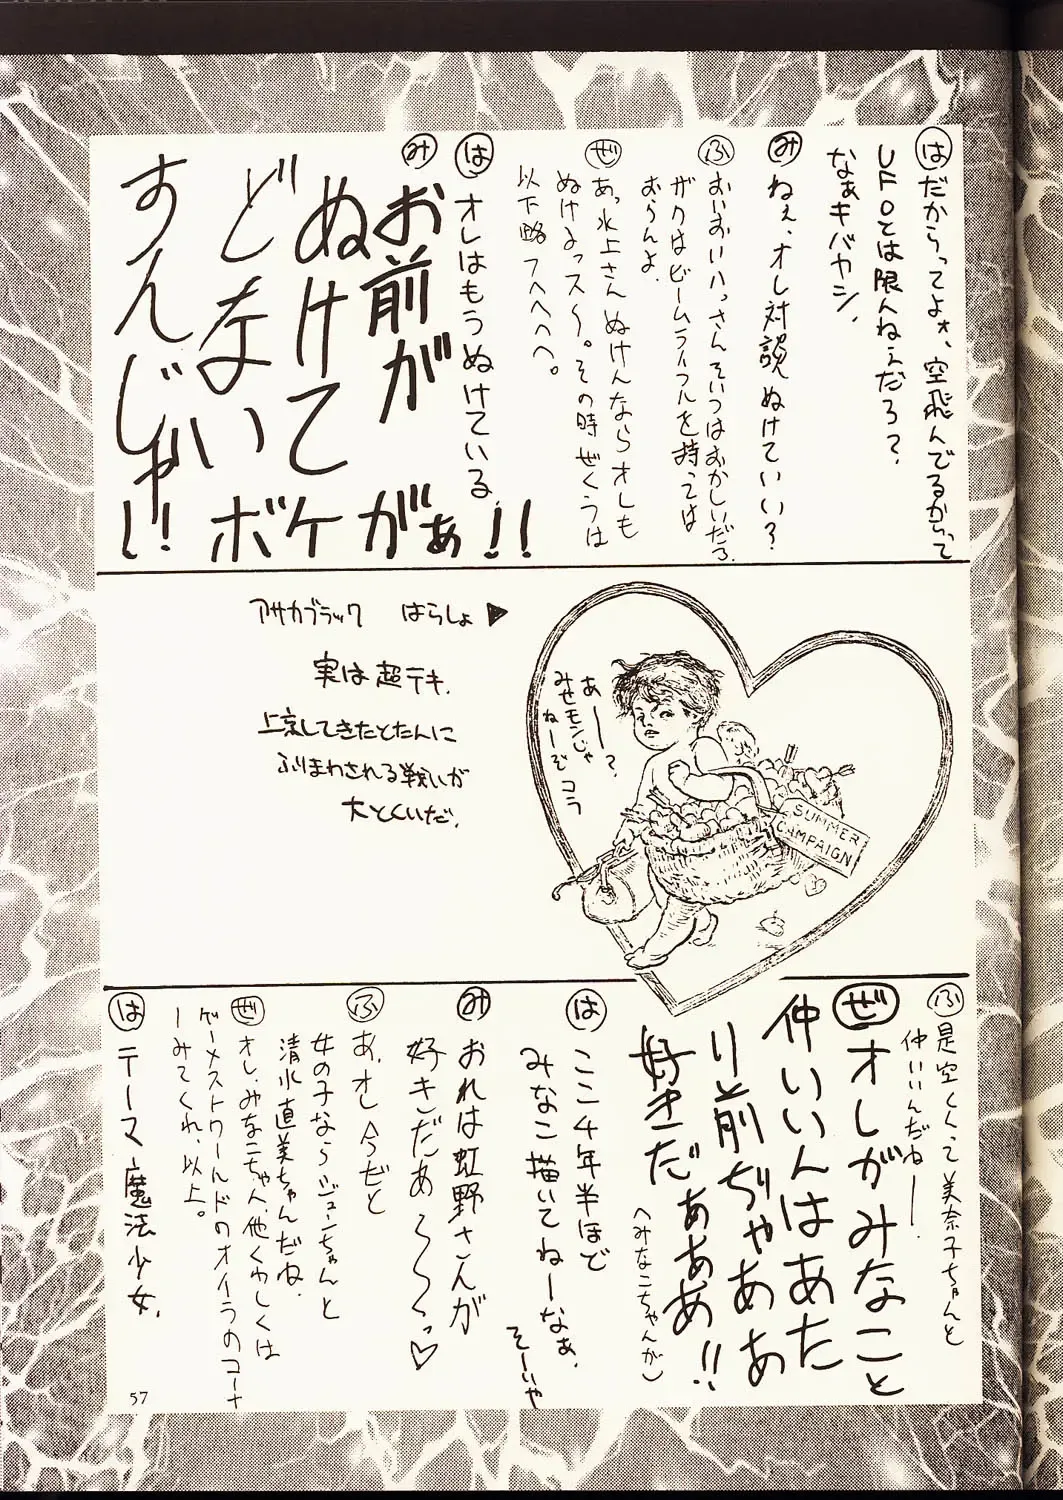 は だからってよォ、空飛んでるからって
UFOとは限んねぇだろ？
なぁキバヤシ、
み ねぇ、オレ対談ぬけていい？
ふ おいおいハっさんそいつはおかしいだろ、
ザクはビームライフルを持っては
おらんよ。
ぜ あっ水上さんぬけんならオレも
ぬけるっス〜。その時ぜくうは
以下略 フヘヘヘヘ。
は オレはもうぬけている。
み お前が
ぬけて
どないい
すんじゃ
い！ボケがぁ！！
アサカブラック はらしょ▶
実は超テキ、
上京してきたとたんに
ふりまわされる戦いが
大とくいだ。
あー？、
みせモンじゃ
ねーぞコラ
SUMMER
CAMPAIGN
ふ 是空くくて美奈子ちゃんと
仲いいんだねー、
ぜ オレがみなこと
仲いいんはあた
り前ぢゃああ
好きだぁああ!!
（みなこちゃんが）
は ここ4年半ほど
みなこ描いてねーなぁ、
そーいや
み おれは虹野さんが
好きだあ〜〜っ♡
ふ あ、オレ今だと
女の子ならジューンちゃんと
清水直美ちゃんだね、
ぜ オレ、みなこちゃん、他くゎしくは
ゲーメストワールドのオイラのコーナ
ーみてくれ、以上。
は テーマ 魔法少女、
57